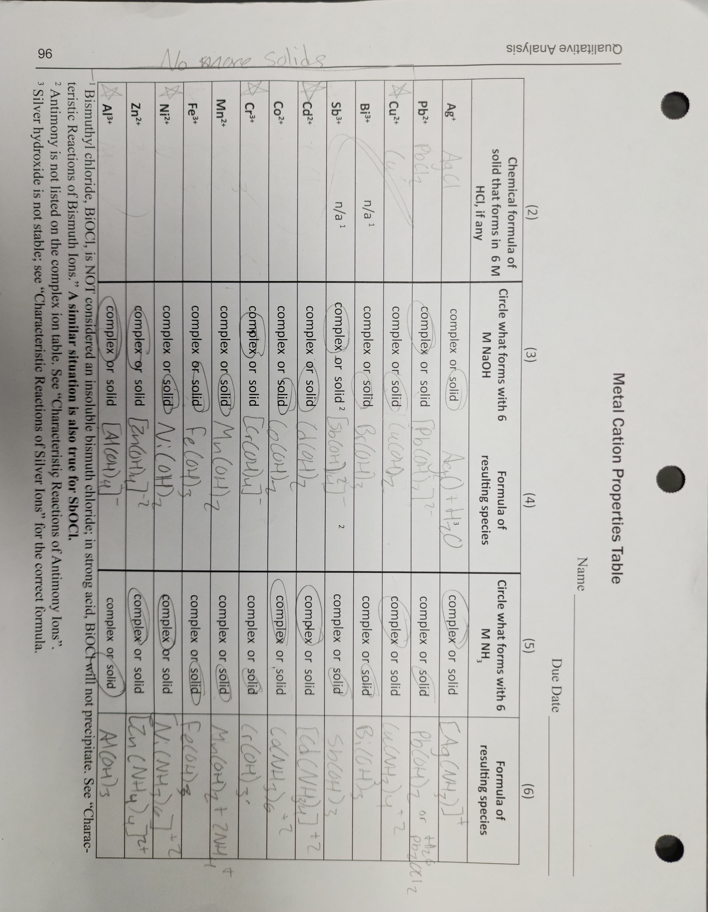 Metal Cation Properties Table
Name
Due Date
(2) (3) (4) (5) (6)
Chemical formula of solid that forms in 6 M HCl, if any | Circle what forms with 6 M NaOH | Formula of resulting species | Circle what forms with 6 M NH3 | Formula of resulting species
Ag⁺ AgCl complex or solid Ag₂O + H₂O ³ complex or solid [Ag(NH₃)₂]⁺
Pb²⁺ PbCl₂ complex or solid [Pb(OH)₄]²⁻ complex or solid Pb(OH)₂ or
Cu²⁺ Cu complex or solid Cu(OH)₂ complex or solid Cu(NH₃)₄⁺²
Bi³⁺ n/a ¹ complex or solid Bi(OH)₃ complex or solid Bi(OH)₃
Sb³⁺ n/a ¹ complex or solid ² [Sb(OH)₄]⁻ ² complex or solid Sb(OH)₃
Cd²⁺ complex or solid Cd(OH)₂ complex or solid [Cd(NH₃)₄]⁺²
Co²⁺ complex or solid Co(OH)₂ complex or solid Co(NH₃)₆⁺²
Cr³⁺ complex or solid [Cr(OH)₄]⁻ complex or solid Cr(OH)₃
Mn²⁺ complex or solid Mn(OH)₂ complex or solid Mn(OH)₂ + 2NH₄⁺
Fe³⁺ complex or solid Fe(OH)₃ complex or solid Fe(OH)₃
Ni²⁺ complex or solid Ni(OH)₂ complex or solid [Ni(NH₃)₆]⁺²
Zn²⁺ complex or solid [Zn(OH)₄]⁻² complex or solid [Zn(NH₄)₄]²⁺
Al³⁺ complex or solid [Al(OH)₄]⁻ complex or solid Al(OH)₃
¹ Bismuthyl chloride, BiOCl, is NOT considered an insoluble bismuth chloride; in strong acid, BiOCl will not precipitate. See “Charac-
teristic Reactions of Bismuth Ions.” A similar situation is also true for SbOCl.
² Antimony is not listed on the complex ion table. See “Characteristic Reactions of Antimony Ions”.
³ Silver hydroxide is not stable; see “Characteristic Reactions of Silver Ions” for the correct formula.
No more solids
Qualitative Analysis
96